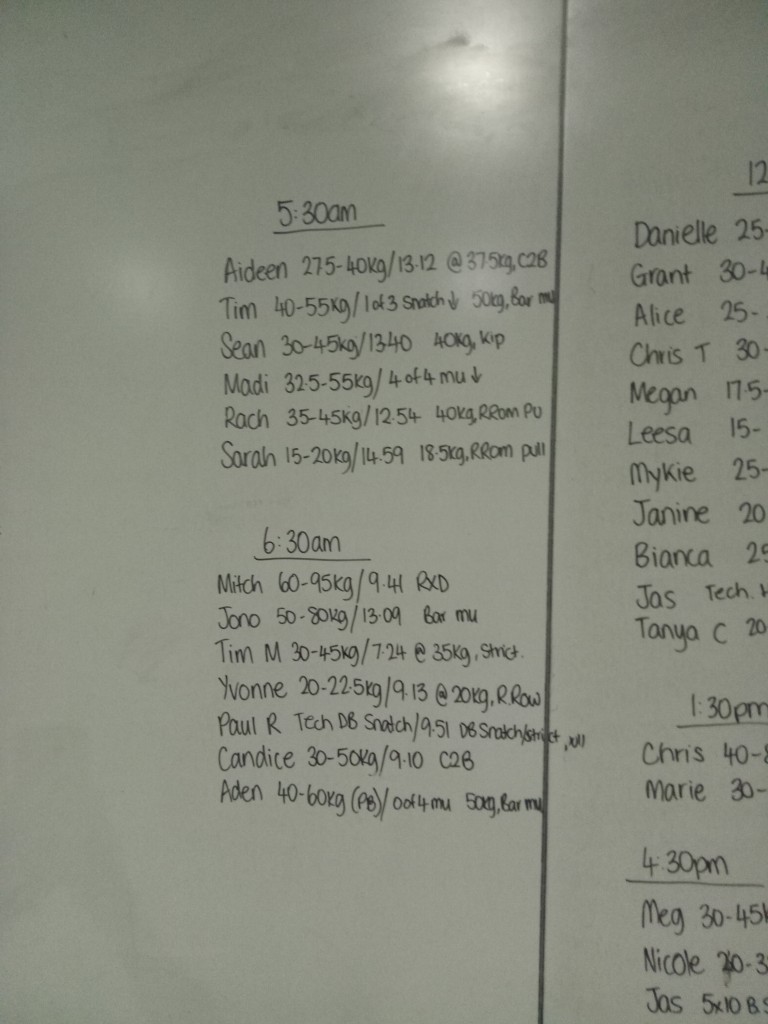 5:30am
Aideen 27.5-40kg/13.12 @ 37.5kg, C2B
Tim 40-55kg/1 of 3 Snatch ↓ 50kg, Bar mu
Sean 30-45kg/13.40 40kg, Kip
Madi 32.5-55kg/4 of 4 mu ↓
Rach 35-45kg/12.54 40kg, RRom PU
Sarah 15-20kg/14.59 18.5kg, RRom pull
6:30am
Mitch 60-95kg/9.41 RXD
Jono 50-80kg/13.09 Bar mu
Tim M 30-45kg/7.24 @ 35kg, Strict.
Yvonne 20-22.5kg/9.13 @ 20kg, R.Row
Paul R Tech DB Snatch/9.51 DB Snatch/Strict, pull
Candice 30-50kg/9.10 C2B
Aden 40-60kg (PB)/0 of 4 mu 50kg, Bar mu
12
Danielle 25-
Grant 30-4
Alice 25-
Chris T 30-
Megan 17.5-
Leesa 15-
Mykie 25-
Janine 20
Bianca 25
Jas Tech.
Tanya C 20
1:30pm
Chris 40-8
Marie 30-
4:30pm
Meg 30-45k
Nicole 20-3
Jas 5x10 B.S